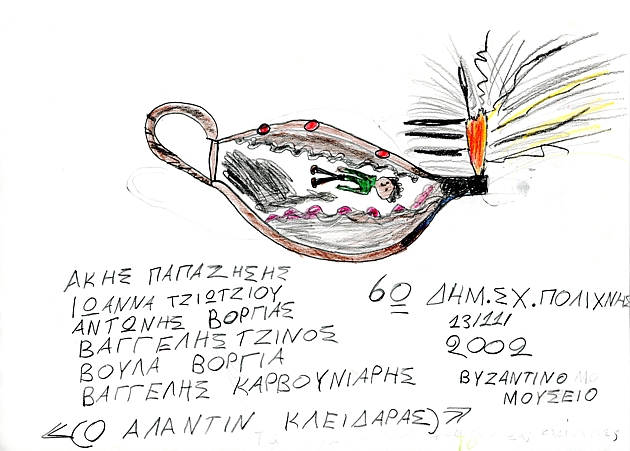 ΑΚΗΣ ΠΑΠΑΖΗΣΗΣ
ΙΩΑΝΝΑ ΤΖΙΩΤΖΙΟΥ
ΑΝΤΩΝΗΣ ΒΟΡΓΙΑΣ
ΒΑΓΓΕΛΗΣ ΤΖΙΝΟΣ
ΒΟΥΛΑ ΒΟΡΓΙΑ
ΒΑΓΓΕΛΗΣ ΚΑΡΒΟΥΝΙΑΡΗΣ
(Ο ΑΛΑΝΤΙΝ ΚΛΕΙΔΑΡΑΣ)
6Ο ΔΗΜ.ΣΧ.ΠΟΛΙΧΝΗΣ
13/11/
2002
ΒΥΖΑΝΤΙΝΟ
ΜΟΥΣΕΙΟ